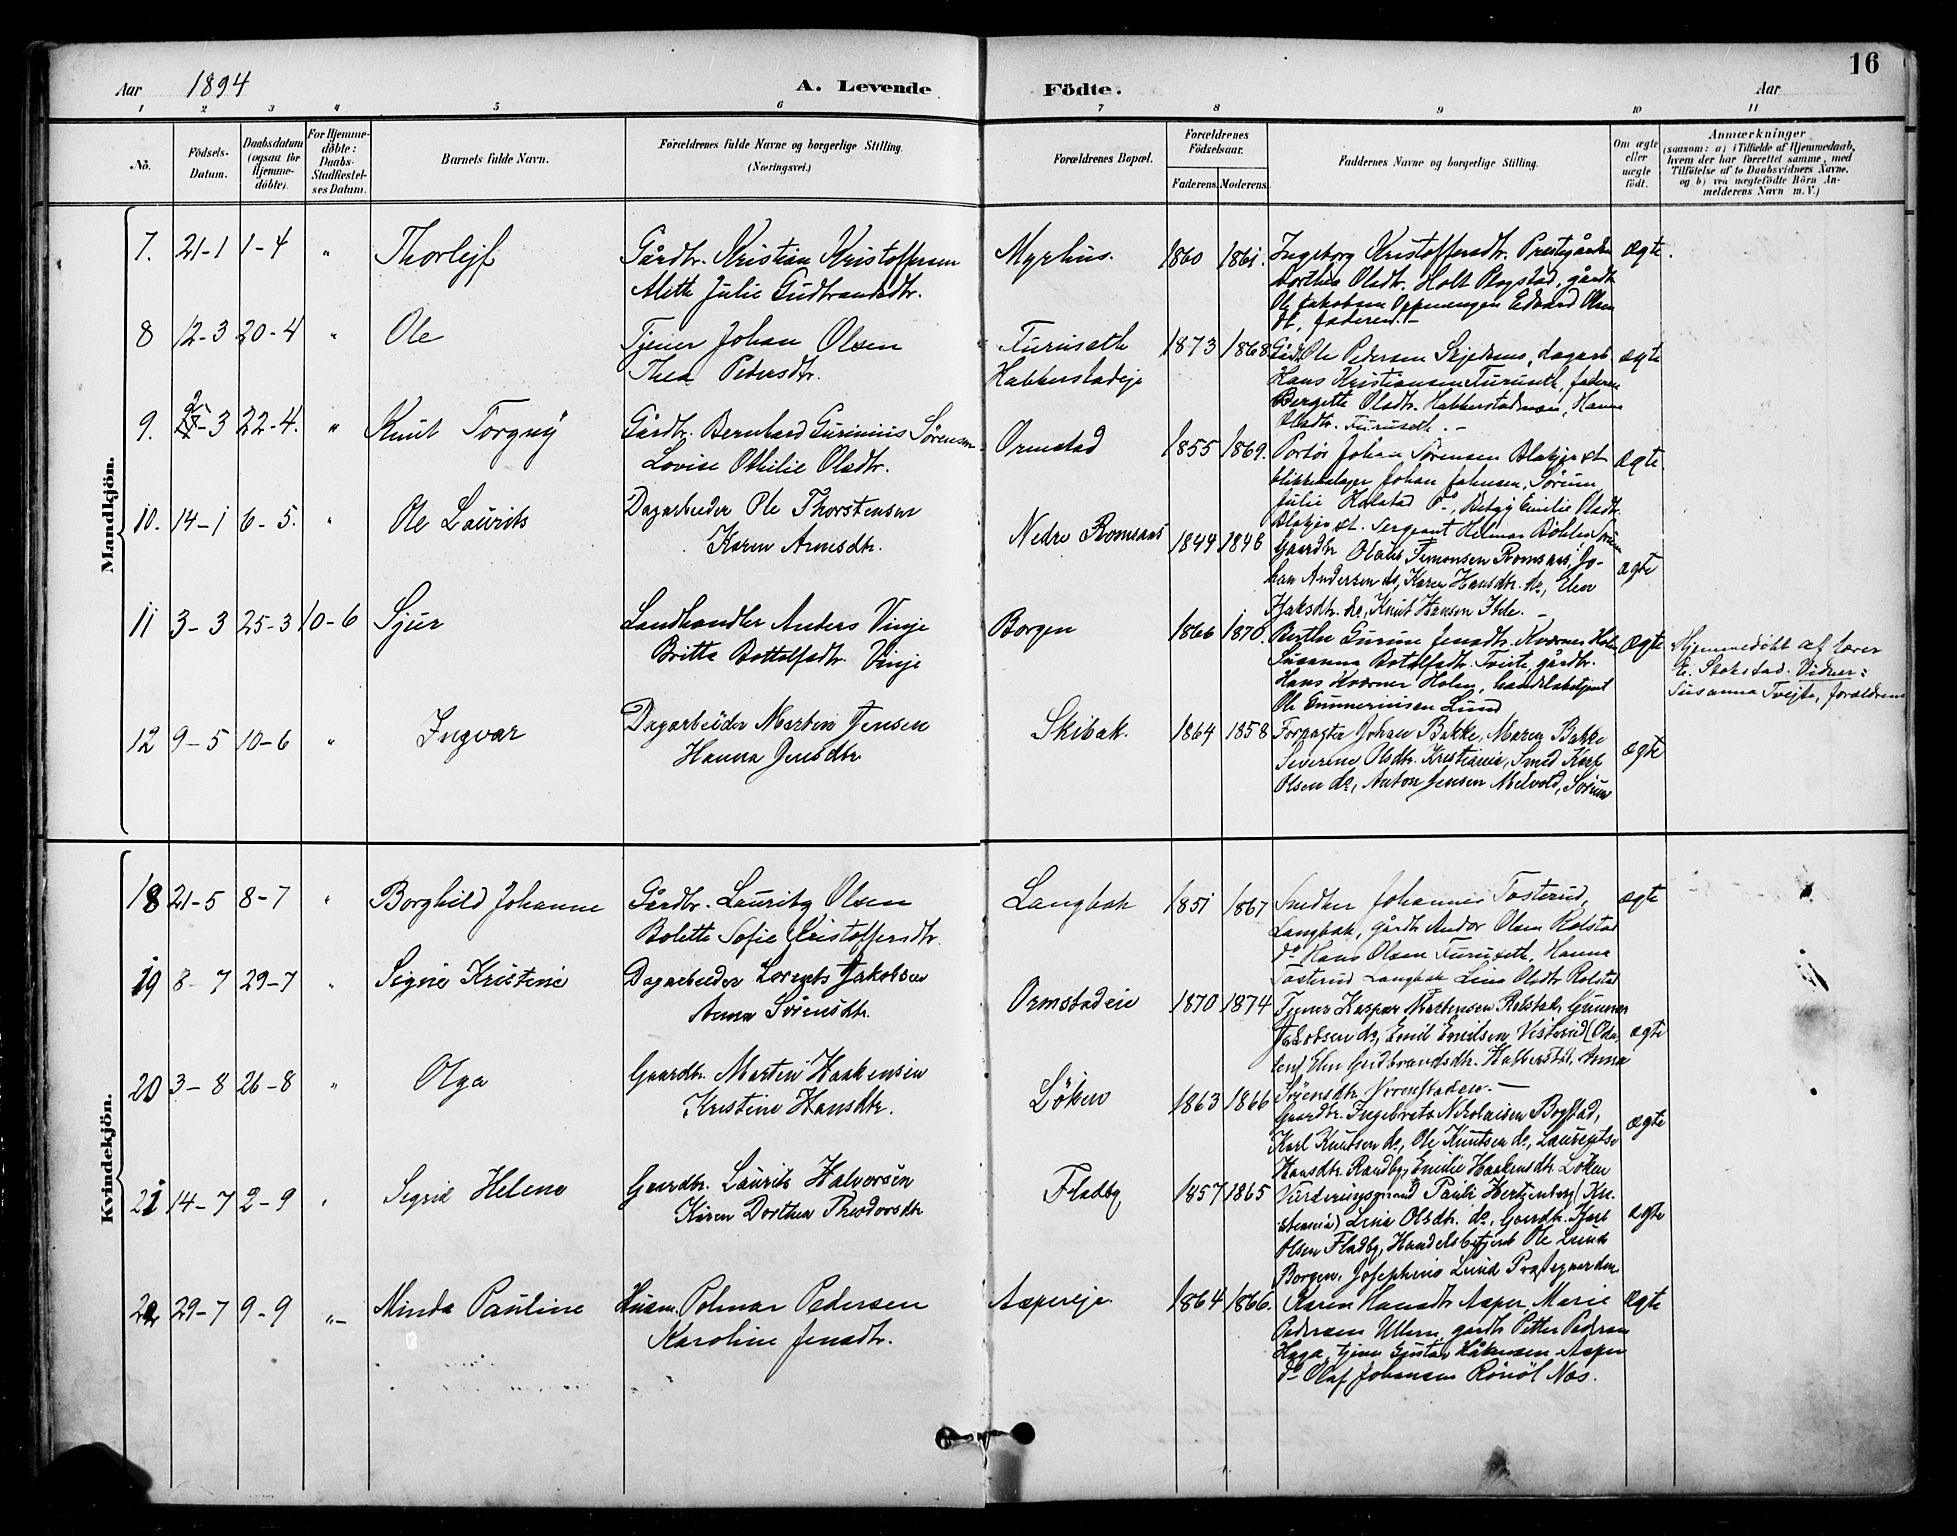 16
Aar 1894 A. Levende Födte. Aar
1 2 3 4 5 6 7 8 9 10 11
No.
Födsels-
Datum.
Daabsdatum
(ogsaa for
Hjemme-
döbte).
For Hjemme-
döbte:
Daabs-
Stadfæstel-
ses Datum.
Barnets fulde Navn.
Forældrenes fulde Navne og borgerlige Stilling.
(Næringsvei.)
Forældrenes Bopæl.
Forældrenes
Födselsaar.
Faderens. Moderens.
Faddernes Navne og borgerlige Stilling.
Om ægte
eller
uægte
födt.
Anmærkninger
(saasom: a) i Tilfælde af Hjemmedaab,
hvem der har forrettet samme, med
Tilföielse af to Daabsvidners Navne.
og b) ved uægtefödte Börn An-
melderens Navn m. V.)
Mandkjön.
7. 21-1 1-4 " Thorlejf
Gårdbr. Kristian Kristoffersen
Alette Julie Gudbrandsdtr.
Myrhus. 1860 1861.
Ingeborg Kristoffersdtr. Prestegården
Dorthea Olsdtr. Holt Rogstad, gårdb.
Ole Jakobsen Oppenengen Edvard Olsen
Ht, faderen.-
Ægte.
8 12-3 20-4 " Ole
Tjener Johan Olsen
Thea Pedersdtr.
Furuseth
Habberstadeje
1873 1868
Gårdb. Ole Pedersen Skjedsmo, dagarb
Hans Kristiansen Furuseth, faderen
Bergette Olsdtr. Habberstadmoen, Hanna
Olsdtr. Furuseth.-
ægte
9. 25-3 22-4. " Knut Torgny
Gårdbr. Bernhard Gurinius Sørensen
Lovise Othilie Olsdtr.
Ormstad 1855 1869.
Portør Johan Sørensen Blakjer st.
blikkenslager Johan Johnsen, Sørum
Julie Holstad Do, Betzy Emilie Olsdtr.
Blakjer st. Sergeant Helmer Bøhler Sørum
Ægte
10. 14-1 6-5. " Ole Laurits
Dagarbeider Ole Thorstensen
Karen Arnesdtr.
Nedre Romsaas 1844 1848
Gaardbr Olaus Simonsen Romsaas, Jo-
han Andersen do, Karen Hansdtr. do, Elen
Isaksdtr. do, Knut Hansen Itde.-
Ægte
11 3-3 25-3 10-6 Sjur
Landhandler Anders Vinje
Britta Bottolfsdtr. Vinje
Borgen 1866 1870.
Berthe Gurine Jensdtr. Kværner Holm
Susanna Botolfsdtr. Tveite, gårdbr.
Hans Kværner Holm, handelsbetjent
Ole Gunneriusen Lund
Ægte
Hjemmedøbt af lærer
E. Stokstad. Vidner:
Susanna Tvejte, forældrene
12 9-5 10-6 " Ingvar
Dagarbeider Morten Jensen
Hanna Jensdtr.
Skibak. 1864 1858
Forpagter Johan Bakke, Maren Bakke
Severine Olsdtr. Kristiania, Smed Karl
Olsen do, Anton Jensen Melvold, Sørum
ægte
Kvindekjön.
18 21-5 8-7 " Borghild Johanne
Gårdbr. Lauritz Olsen
Bolette Sofie Kristoffersdtr.
Langbak 1851 1867
Snedker Johannes Tosterud,
Langbak, gårdb. Andor Olsen Rolstad
do Hans Olsen Furuseth, Hanna
Tosterud Langbak Lina Olsdtr Rolstad
ægte
19 8-7 29-7 " Signe Kristine
Dagarbeider Lorents Jakobsen
Anna Sørensdtr.
Ormstadeie 1870 1874
Tjener Kasper Mortensen Rolstad, Gunnar
Jakobsen do, Emil Emilsen Visterud (Oda-
len) Elen Gudbrandsdtr. Habberstad, Anna
Sørensdtr. Vormstadeie.-
ægte
20 3-8 26-8 " Olga
Gaardbr. Martin Haakensen
Kristine Hansdtr.
Löken 1863 1866
Gaardbr. Ingebret Nikolaisen Bogstad,
Karl Knutsen do, Ole Knutsen do, Laurentse
Hansdtr. Randby, Emilie Haakensdtr Løken
ægte
21 14-7 2-9 " Sigrid Helene
Gaardbr. Laurits Halvorsen
Karen Dorthea Theodorsdtr
Fladby 1857 1865
Vurderingsmand Pauli Hertzenberg (Kri-
stiania) Lina Olsdtr. do, Gaardbr. Karl
Olsen Fladby, Handelsbetjent Ole Lund
Borgen, Josephine Lund Præstegaarden.
ægte
22 29-7 9-9 " Minda Pauline
Husm. Polmar Pedersen
Karoline Jensdtr.
Aspereje 1864 1866.
Karen Hansdtr Asper, Marie
Pedersen Ullern, gårdb. Petter Pedersen
Haga, tjener Gustav Håkensen Asper
do Olaf Johansen Rönöl Næs.
Ægte